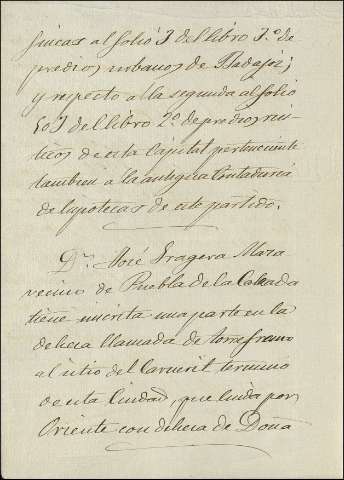 fincas al folio 3 del libro 3.º de
predios urbanos de Badajoz;
y respecto a la segunda al folio
503 del libro 2.º de predios rus-
ticos de esta Capital perteneciente
tambien a la antigua Contaduria
de hipotecas de este partido.
Dn. José Fragera Maza
vecino de Puebla de la Calzada
tiene inscrita una parte en la
dehesa llamada de torrefresno
al sitio del termino
de esta Ciudad, que linda por
Oriente con dehesa de Doña